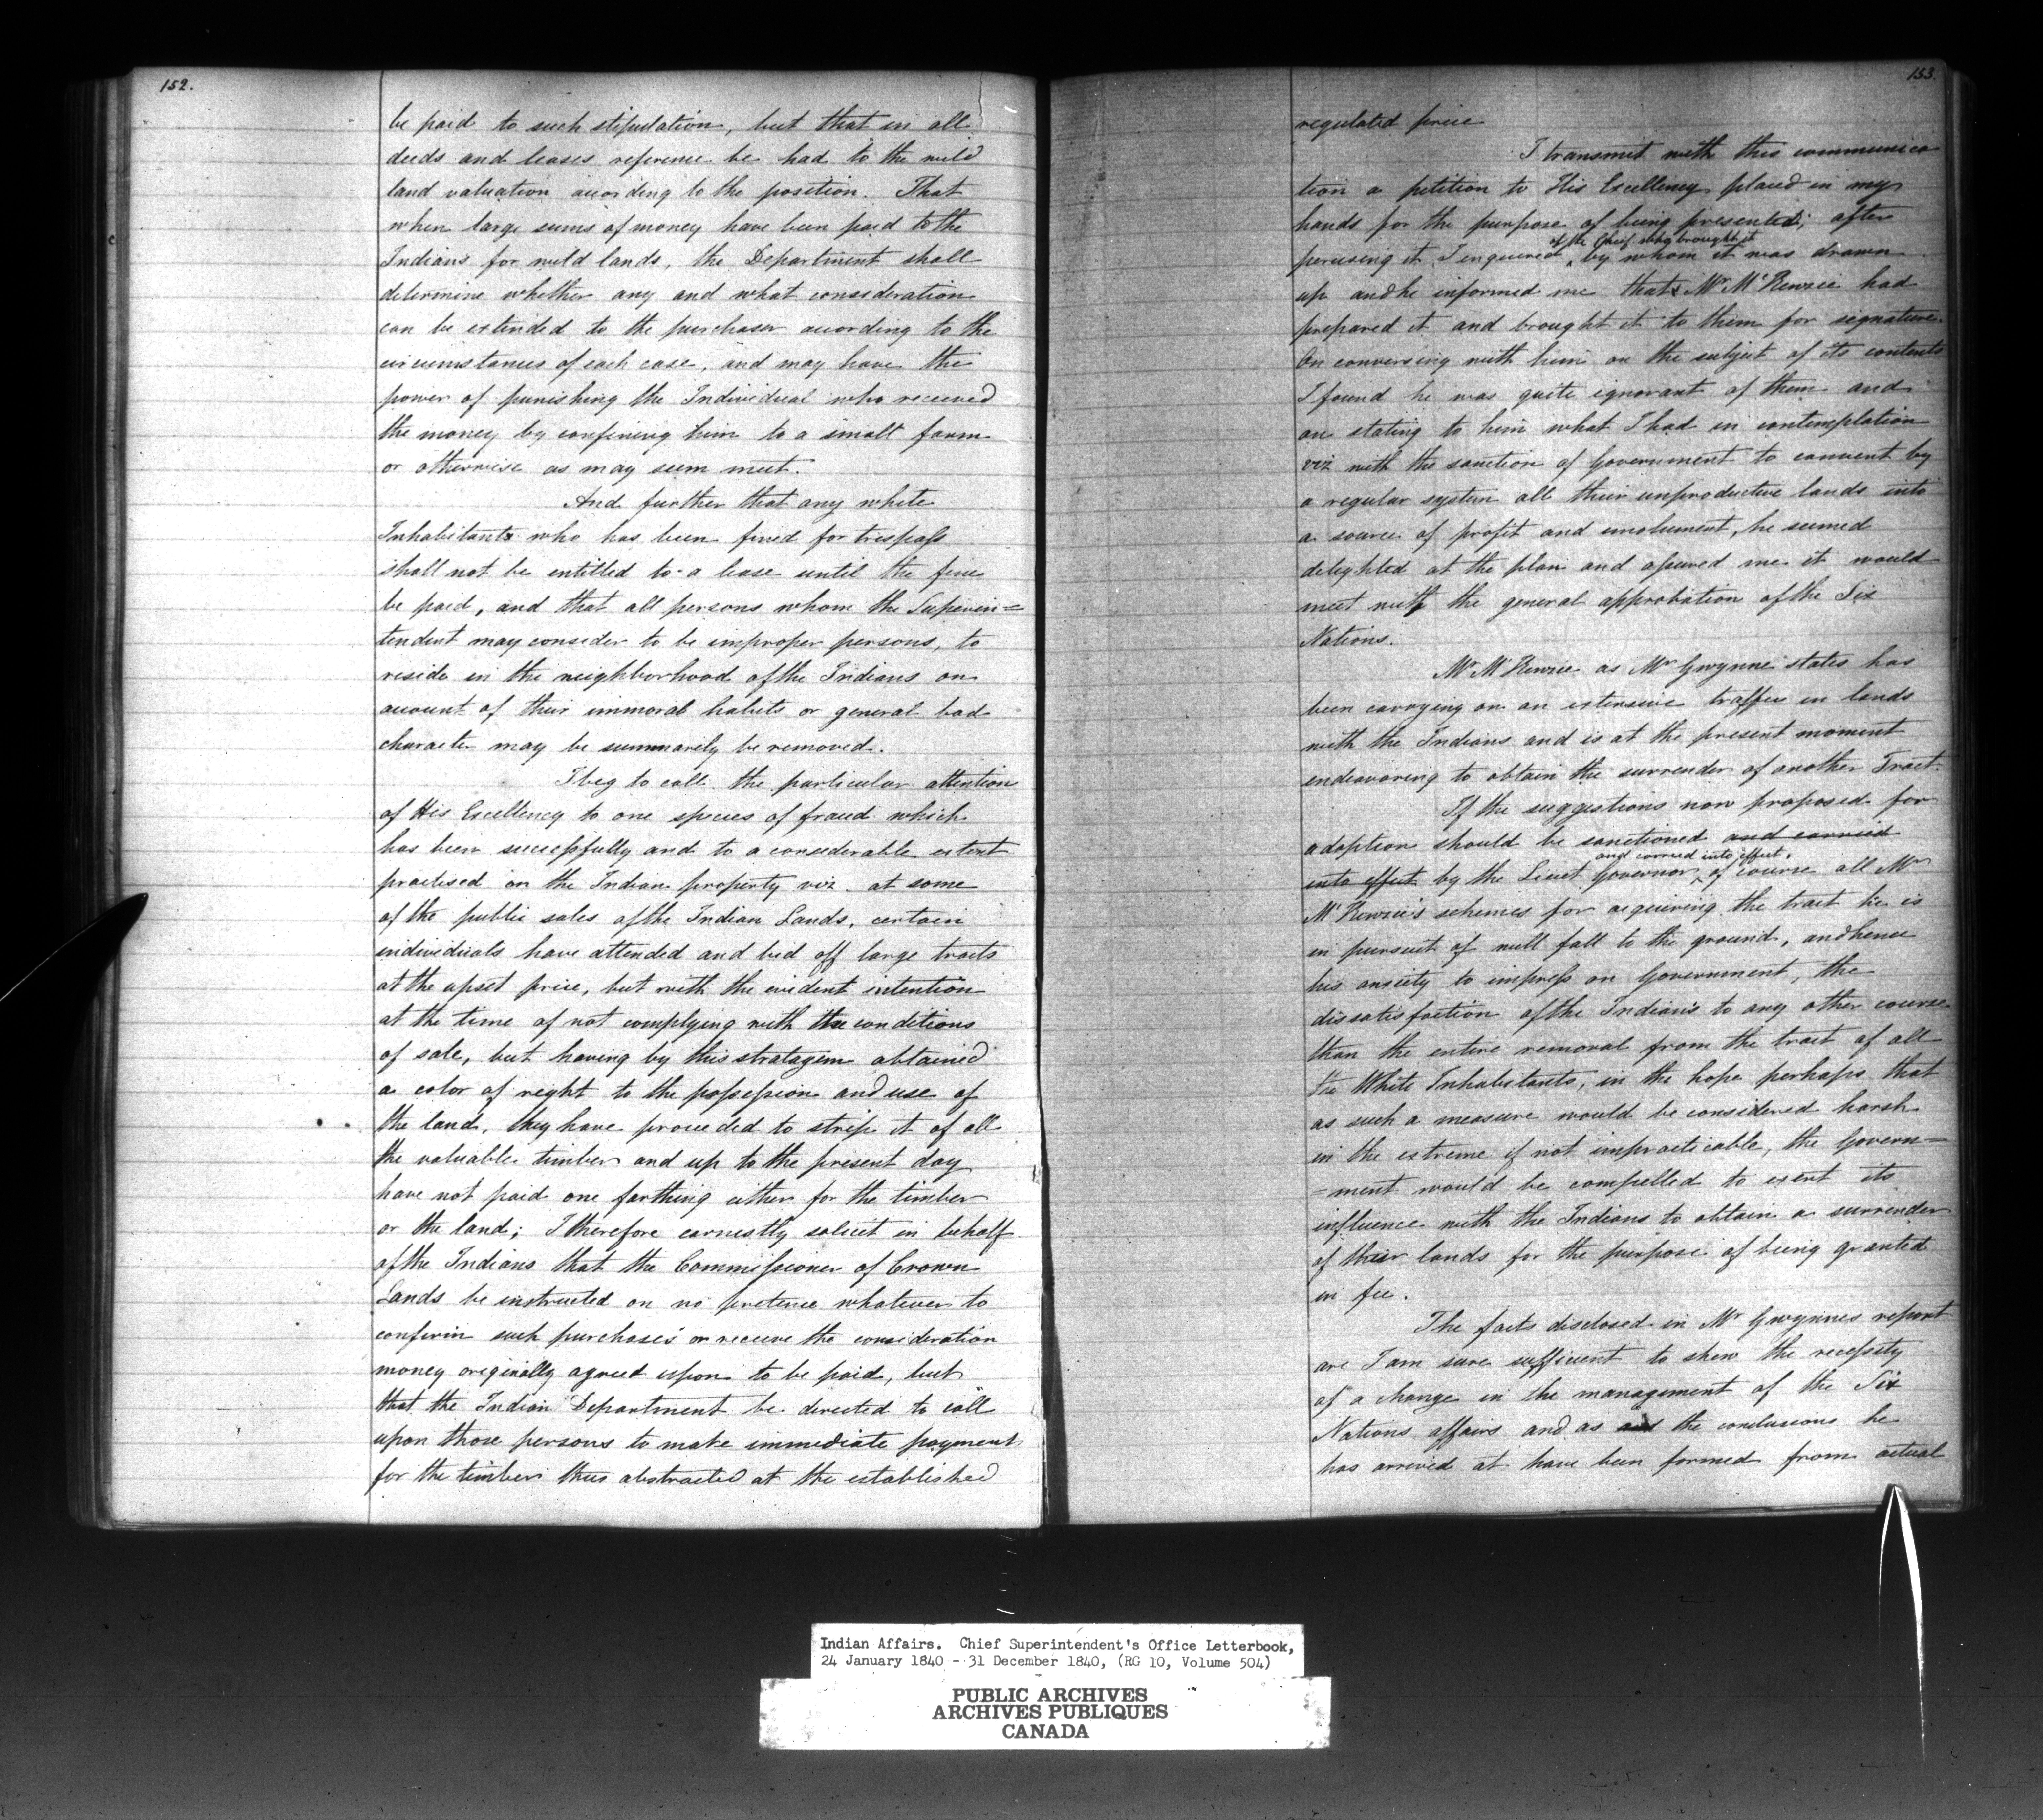 152.
be paid to such stipulation, but that in all
deeds and leases reference be had to the wild
land valuation according to the position. That
when large sums of money have been paid to the
Indians for wild lands, the Department shall
determine whether any and what consideration
can be extended to the purchaser according to the
circumstances of each case, and may have the
power of punishing the Individual who received
the money by confining him to a small farm
or otherwise as may seem meet.
And further that any white
Inhabitants who has been fined for trespass
shall not be entitled to a lease until the fine
be paid, and that all persons whom the Superin=
tendent may consider to be improper persons, to
reside in the neighborhood of the Indians on
account of their immoral habits or general bad
character may be summarily be removed.
I beg to call the particular attention
of His Excellency to one species of fraud which
has been successfully and to a considerable extent
practised on the Indian property viz. at some
of the public sales of the Indian Lands, certain
individuals have attended and bid off large tracts
at the upset price, but with the evident intention
at the time of not complying with the conditions
of sale, but having by this stratagem obtained
a color of right to the possession and use of
the land, they have proceeded to strip it of all
the valuable timber and up to the present day
have not paid one farthing either for the timber
or the land; I therefore earnestly solicit in behalf
of the Indians that the Commissioner of Crown
Lands be instructed on no pretence whatever to
confirm such purchases or receive the consideration
money originally agreed upon to be paid, but
that the Indian Department be directed to call
upon those persons to make immediate payment
for the timber thus abstracted at the established
153.
regulated price
I transmit with this communica
tion a petition to His Excellency placed in my
hands for the purpose of being presented; after
of the Chief who brought it
perusing it I enquired by whom it was drawn
up and he informed me that Mr McKenzie had
prepared it and brought it to them for signature.
On conversing with him on the subject of its contents
I found he was quite ignorant of them and
on stating to him what I had in contemplation
viz with the sanction of Government to convert by
a regular system all their unproductive lands into
a source of profit and emolument, he seemed
delighted at the plan and assured me it would
meet with the general approbation of the Six
Nations.
Mr McKenzie as Mr Gwynne states has
been carrying on an extensive traffic in lands
with the Indians and is at the present moment
endeavoring to obtain the surrender of another Tract.
If the suggestions now proposed for
adoption should be sanctioned and carried
and carried into effect,
into effect by the Lieut Governor of course all Mr
McKenzie's schemes for acquiring the tract he is
in pursuit of will fall to the ground, and hence
his anxiety to impress on Government, the
dissatisfaction of the Indians to any other course
than the entire removal from the tract of all
the White Inhabitants, in the hope perhaps that
as such a measure would be considered harsh
in the extreme if not impracticable, the Govern=
=ment would be compelled to exert its
influence with the Indians to obtain a surrender
of their lands for the purpose of being granted
in fee.
The facts disclosed in Mr Gwynnes report
are I am sure sufficient to shew the necessity
of a change in the management of the Six
Nations affairs and as the conclusions he
has arrived at have been formed from actual
Indian Affairs. Chief Superintendent's Office Letterbook,
24 January 1840 - 31 December 1840, (RG 10, Volume 504)
PUBLIC ARCHIVES
ARCHIVES PUBLIQUES
CANADA